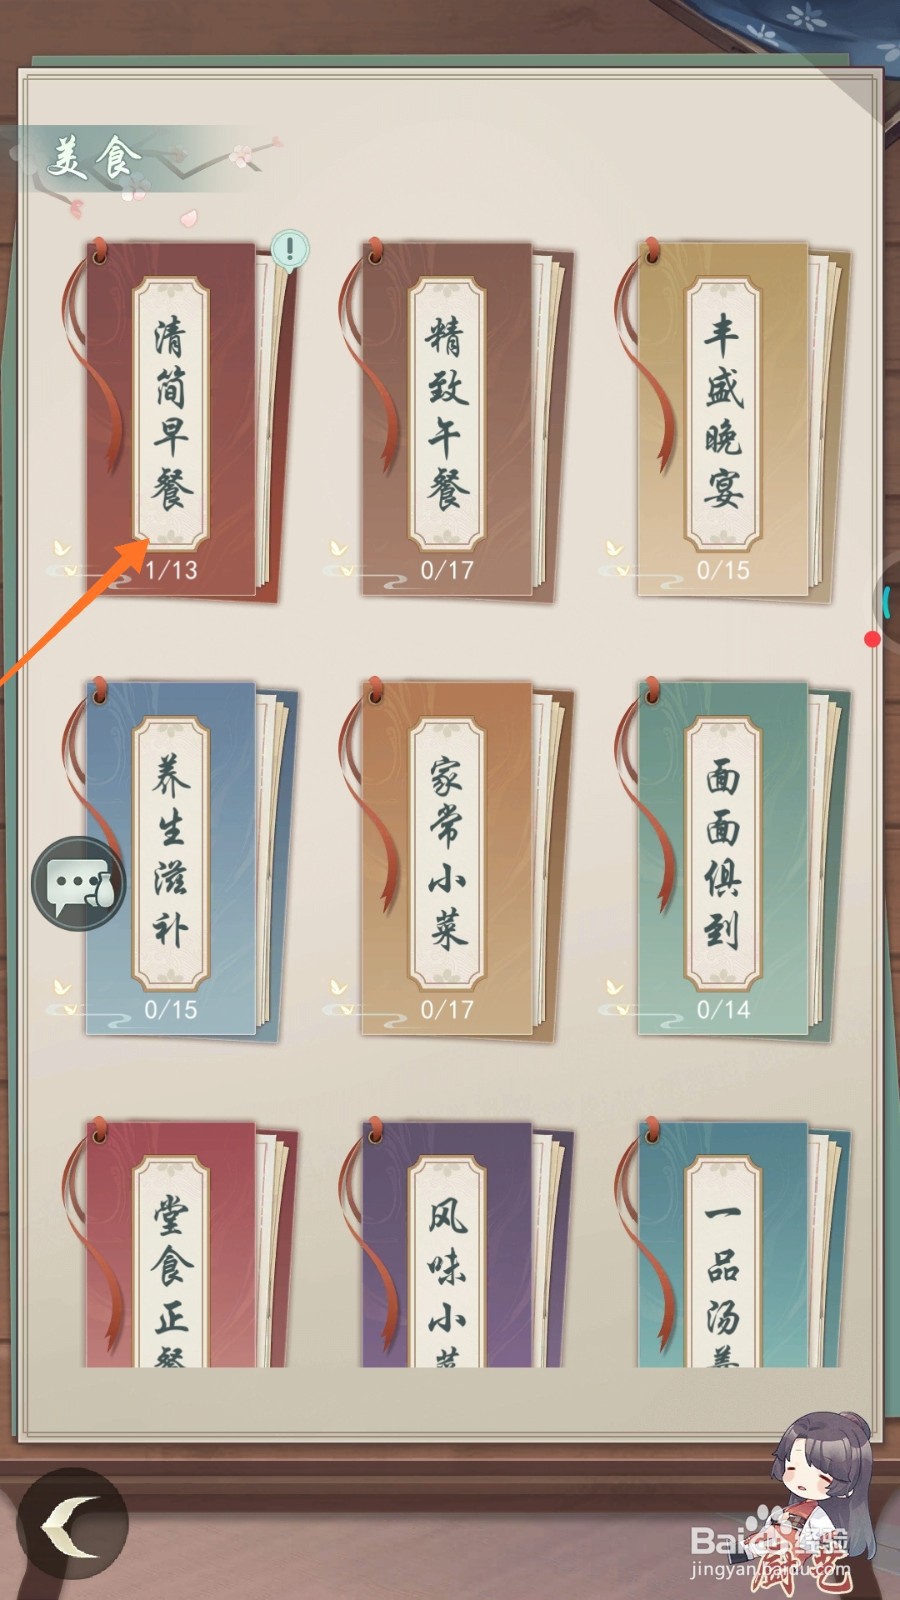 美食
清简早餐
1/13
精致午餐
0/17
丰盛晚宴
0/15
养生滋补
0/15
家常小菜
0/17
面面俱到
0/14
堂食正餐
风味小菜
一品汤羹
Baidu经验
jingyan.baidu.com
厨艺